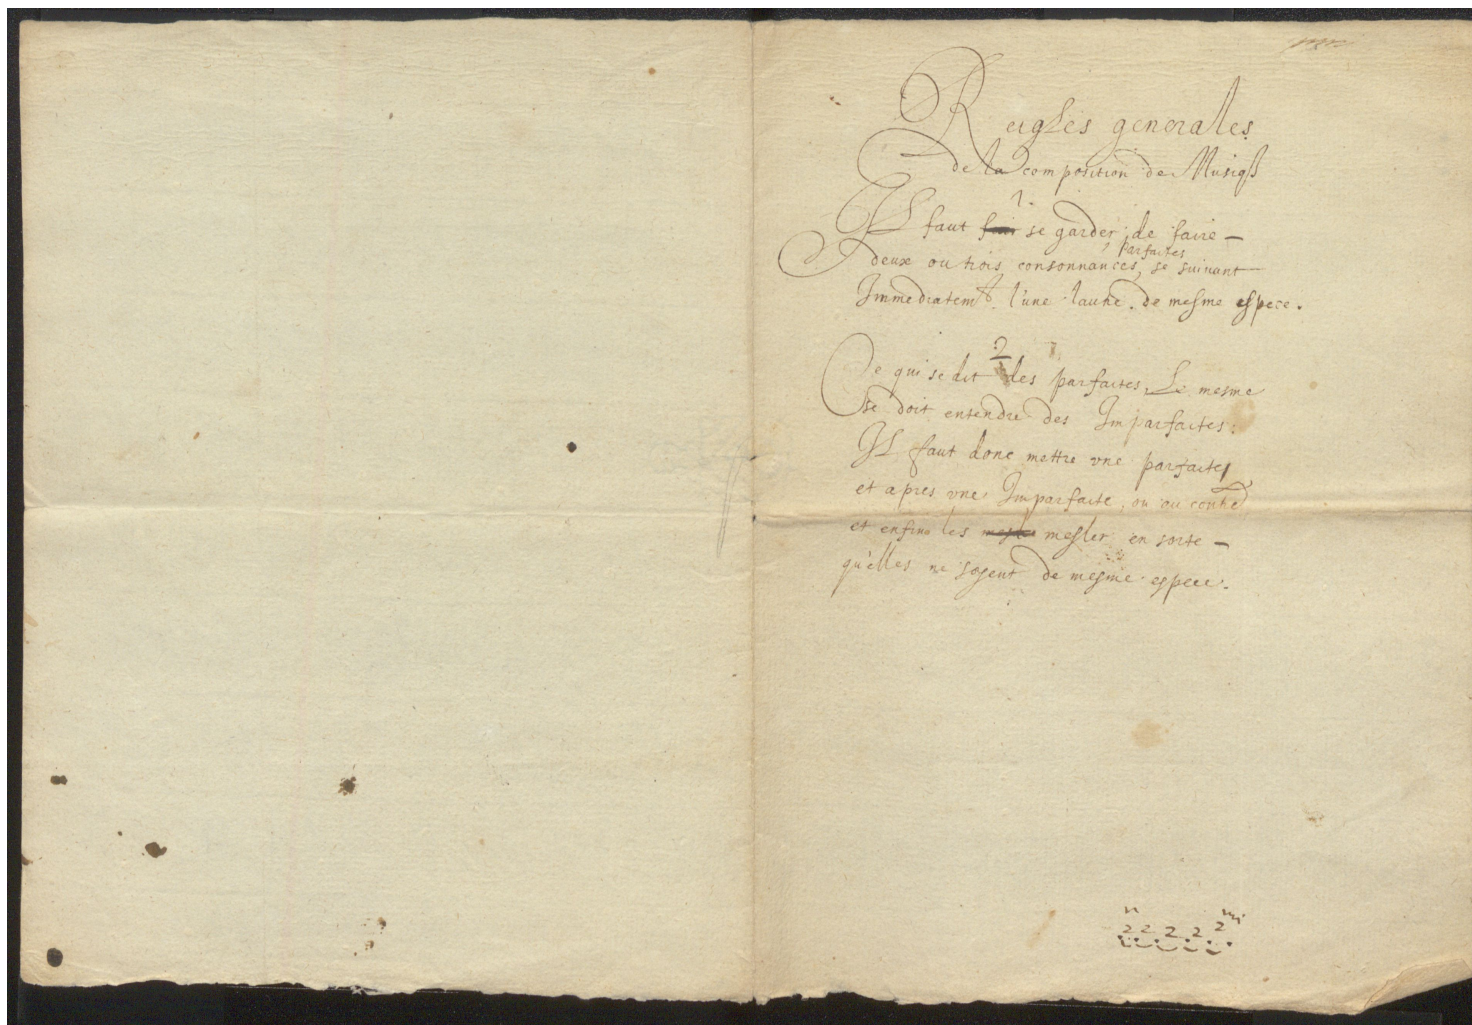 Reigles generales
de la composition de Musiq
1.
Il faut se garder, de faire
parfaites
deux ou trois consonnances, se suivant
Immediatemt. l'une l'autre. de mesme espece.
2
Ce qui se dit des parfaites, Le mesme
se doit entendre des Imparfaites.
Il faut donc mettre vne parfaite
et apres vne Imparfaite, ou au contre
et enfin les mesler en sorte
qu'elles ne soyent de mesme espece.
2 2 2 2 2